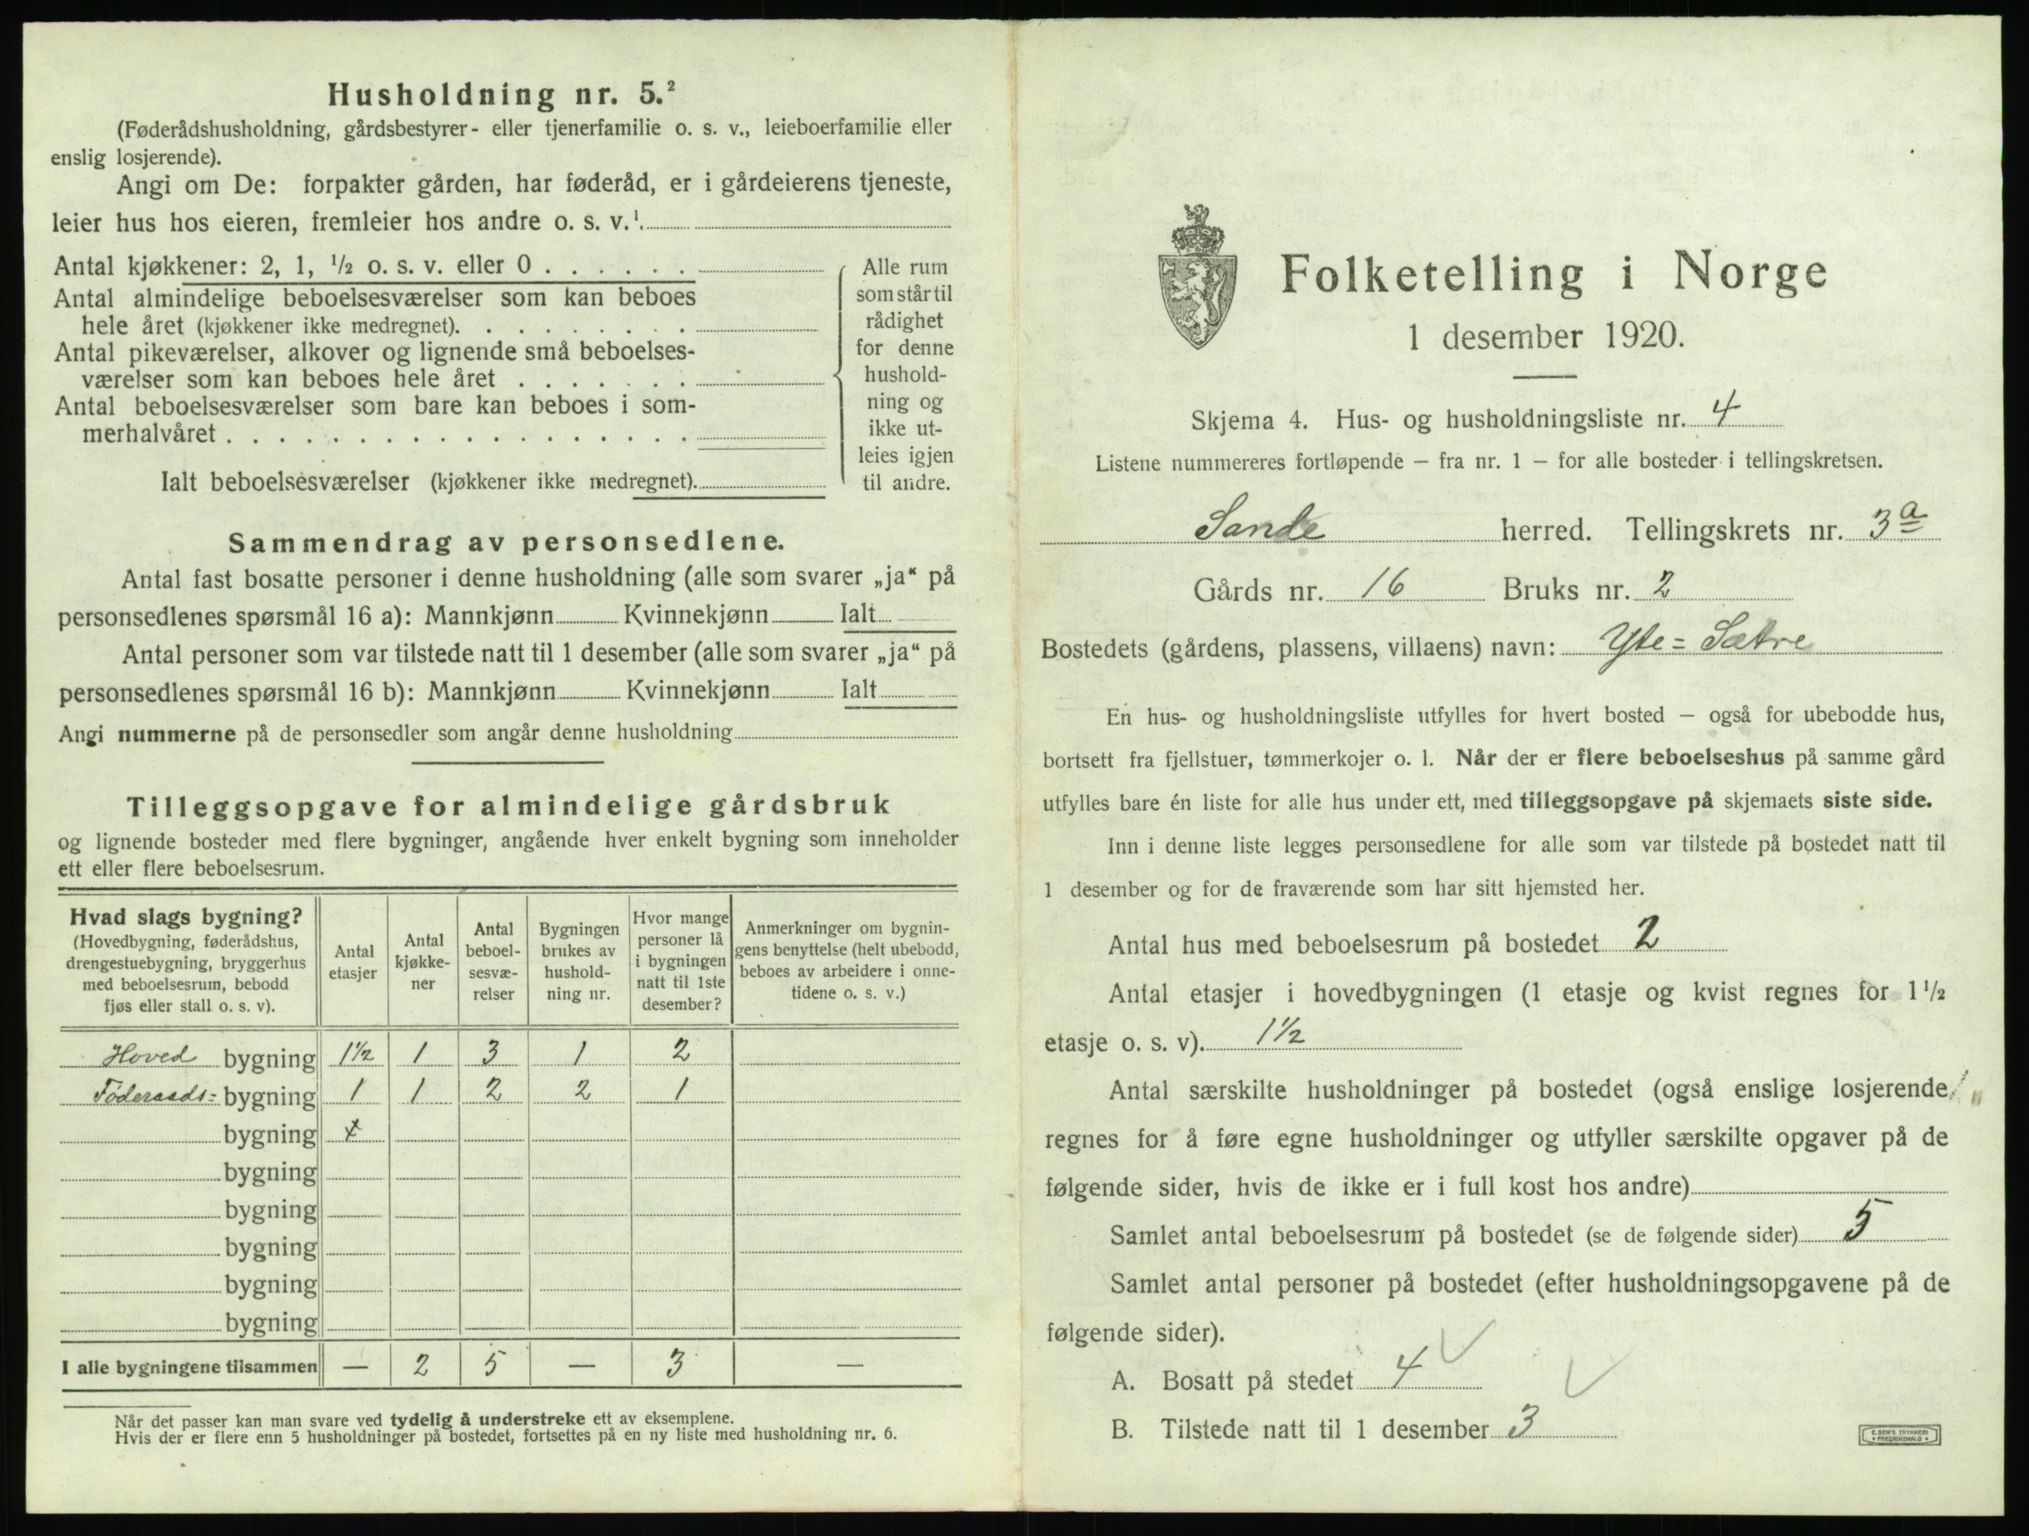 Husholdning nr. 5.²
(Føderådshusholdning, gårdsbestyrer- eller tjenerfamilie o. s. v., leieboerfamilie eller
enslig losjerende).
Angi om De: forpakter gården, har føderåd, er i gårdeierens tjeneste,
leier hus hos eieren, fremleier hos andre o. s. v.¹
Antal kjøkkener: 2, 1, ½ o. s. v. eller 0 . . . . . .
Antal almindelige beboelsesværelser som kan beboes
hele året (kjøkkener ikke medregnet). . . . . . . . .
Antal pikeværelser, alkover og lignende små beboelses-
værelser som kan beboes hele året . . . . . . .
Antal beboelsesværelser som bare kan beboes i som-
merhalvåret . . . . . . . . . . . . . . . . . .
Ialt beboelsesværelser (kjøkkener ikke medregnet)
Alle rum
som står til
rådighet
for denne
hushold-
ning og
ikke ut-
leies igjen
til andre.
Sammendrag av personsedlene.
Antal fast bosatte personer i denne husholdning (alle som svarer „ja“ på
personsedlenes spørsmål 16 a): Mannkjønn Kvinnekjønn Ialt
Antal personer som var tilstede natt til 1 desember (alle som svarer „ja“ på
personsedlenes spørsmål 16 b): Mannkjønn Kvinnekjønn Ialt
Angi nummerne på de personsedler som angår denne husholdning
Tilleggsopgave for almindelige gårdsbruk
og lignende bosteder med flere bygninger, angående hver enkelt bygning som inneholder
ett eller flere beboelsesrum.
Hvad slags bygning?
(Hovedbygning, føderådshus,
drengestuebygning, bryggerhus
med beboelsesrum, bebodd
fjøs eller stall o. s. v).
Antal
etasjer
Antal
kjøkke-
ner
Antal
beboel-
sesvæ-
relser
Bygningen
brukes av
hushold-
ning nr.
Hvor mange
personer lå
i bygningen
natt til 1ste
desember?
Anmerkninger om bygnin-
gens benyttelse (helt ubebodd,
beboes av arbeidere i onne-
tidene o. s. v.)
Hoved bygning 1½ 1 3 1 2
Føderaads= bygning 1 1 2 2 1
bygning
bygning
bygning
bygning
bygning
bygning
I alle bygningene tilsammen — 2 5 — 3 —
Når det passer kan man svare ved tydelig å understreke ett av eksemplene.
Hvis der er flere enn 5 husholdninger på bostedet, fortsettes på en ny liste med husholdning nr. 6.
Folketelling i Norge
1 desember 1920.
Skjema 4. Hus- og husholdningsliste nr. 4
Listene nummereres fortløpende — fra nr. 1 — for alle bosteder i tellingskretsen.
Sande herred. Tellingskrets nr. 3a
Gårds nr. 16 Bruks nr. 2
Bostedets (gårdens, plassens, villaens) navn: Yte=Sætre
En hus- og husholdningsliste utfylles for hvert bosted — også for ubebodde hus,
bortsett fra fjellstuer, tømmerkojer o. l. Når der er flere beboelseshus på samme gård
utfylles bare én liste for alle hus under ett, med tilleggsopgave på skjemaets siste side.
Inn i denne liste legges personsedlene for alle som var tilstede på bostedet natt til
1 desember og for de fraværende som har sitt hjemsted her.
Antal hus med beboelsesrum på bostedet 2
Antal etasjer i hovedbygningen (1 etasje og kvist regnes for 1½
etasje o. s. v). 1½
Antal særskilte husholdninger på bostedet (også enslige losjerende
regnes for å føre egne husholdninger og utfyller særskilte opgaver på de
følgende sider, hvis de ikke er i full kost hos andre)
Samlet antal beboelsesrum på bostedet (se de følgende sider) 5
Samlet antal personer på bostedet (efter husholdningsopgavene på de
følgende sider).
A. Bosatt på stedet 4
B. Tilstede natt til 1 desember 3